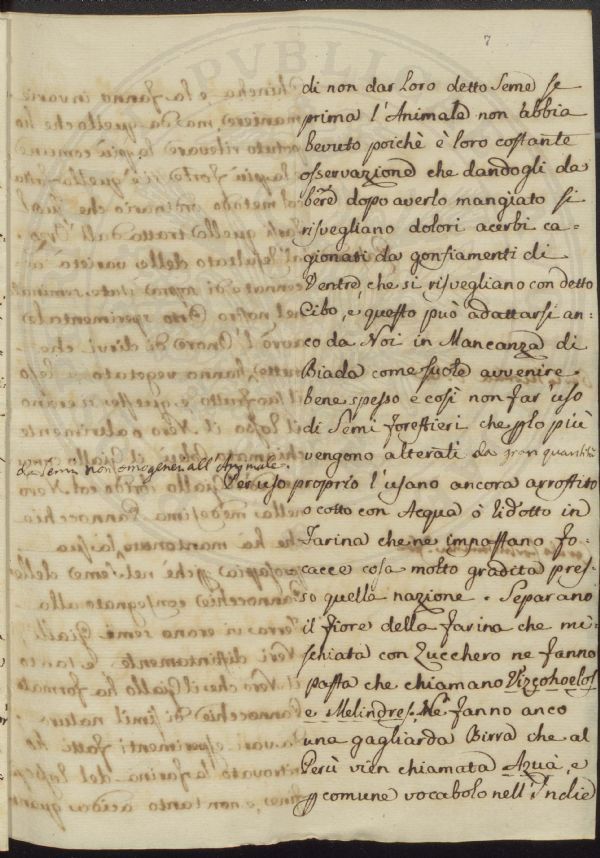 7
di non dar Loro detto Seme se
prima l'Animale non abbia
bevuto poichè è loro costante
osservazione che dandogli da
bere dopo averlo mangiato si
risvegliano dolori acerbi ca-
gionati da gonfiamenti di
Ventre, che si risvegliano con detto
Cibo, e questo può adattarsi an-
co da Noi in Mancanza di
Biada come suole avvenire
bene spesso e così non far uso
di Semi forestieri che plo più
vengono alterati da gran quantità
da Semi non omogenei all'Animale.
Per uso proprio l'usano ancora arrostito
o cotto con Acqua ò ridotto in
Farina che ne impastano fo-
cacce cosa molto gradita pres-
so quella nazione. Separano
il fiore della farina che mi-
schiata con Zucchero ne fanno
pasta che chiamano Vizcohoelos
e Melindres. Ne fanno anco
una gagliarda Birra che al
Perù vien chiamata Azuà, e
p comune vocabolo nell'Indie